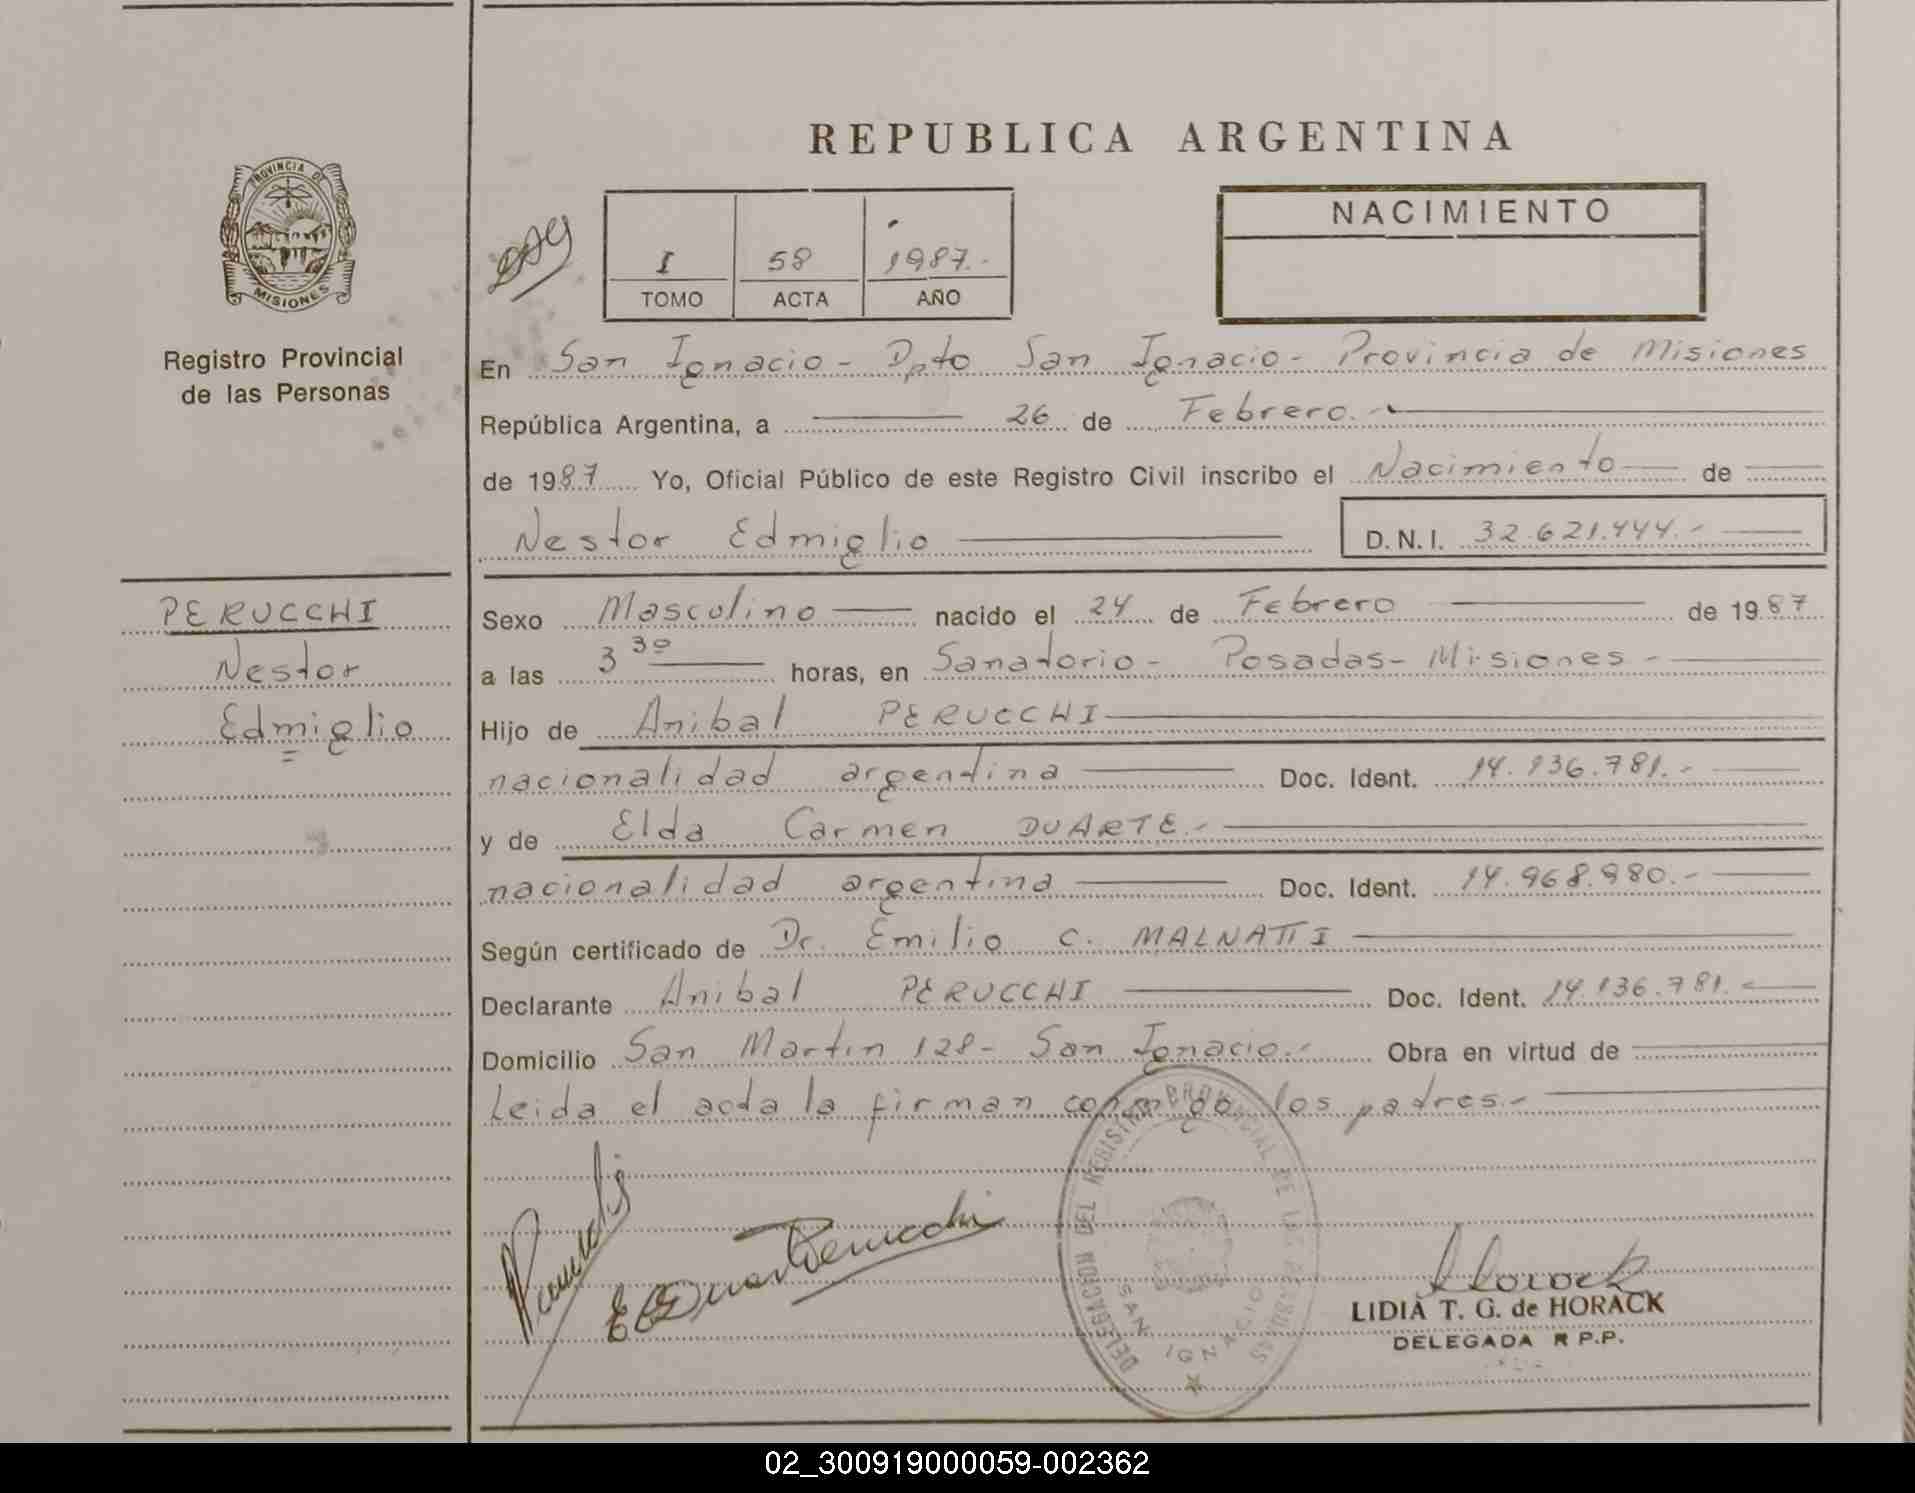 REPUBLICA ARGENTINA
PROVINCIA DE
MISIONES
Registro Provincial
de las Personas
I 58 1987.-
TOMO ACTA AÑO
NACIMIENTO
En San Ignacio - Dpto San Ignacio - Provincia de Misiones
República Argentina, a 26 de Febrero.-
de 1987 Yo, Oficial Público de este Registro Civil inscribo el Nacimiento de
Nestor Edmiglio D.N.I. 32.621.444.-
PERUCCHI
Nestor
Edmiglio
Sexo Masculino nacido el 24 de Febrero de 1987
a las 3 30 horas, en Sanatorio - Posadas - Misiones -
Hijo de Anibal PERUCCHI
nacionalidad argentina Doc. Ident. 14.136.781.-
y de Elda Carmen DUARTE.-
nacionalidad argentina Doc. Ident. 14.968.980.-
Según certificado de Dr. Emilio C. MALNATTI
Declarante Anibal PERUCCHI Doc. Ident. 14.136.781.-
Domicilio San Martin 128 - San Ignacio.- Obra en virtud de
Leida el acta la firman conmigo los padres.-
DELEGACION DEL REGISTRO PROVINCIAL DE LAS PERSONAS
SAN IGNACIO
LIDIA T. G. de HORACK
DELEGADA R P.P.
02_300919000059-002362